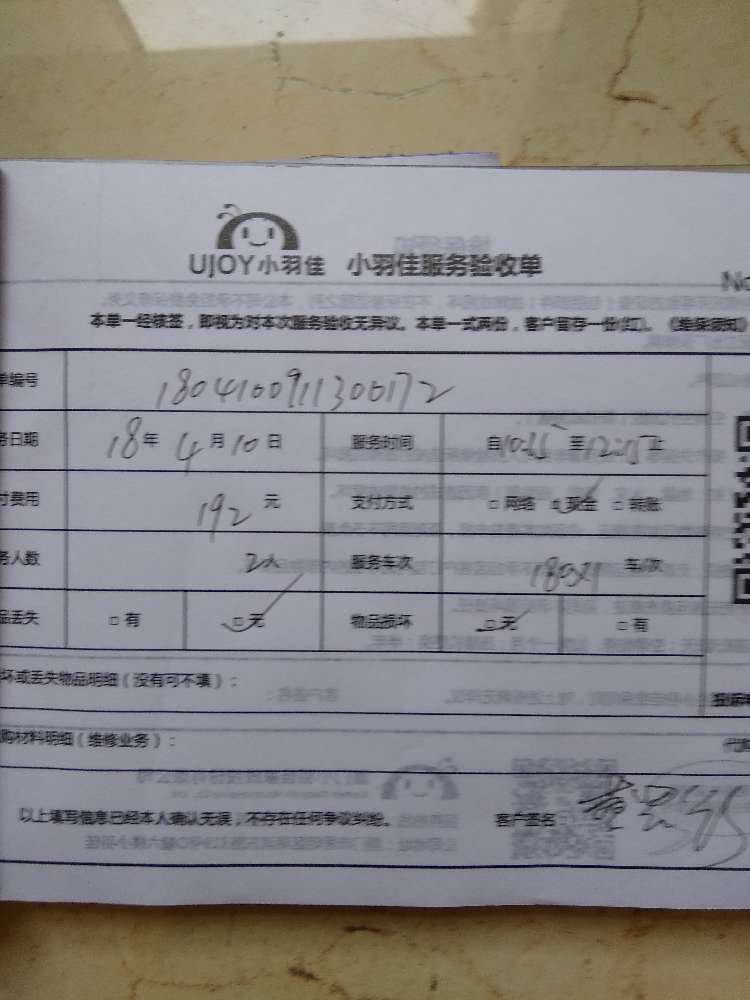 UJOY小羽佳 小羽佳服务验收单
No
本单一经核签，即视为对本次服务验收无异议。本单一式两份，客户留存一份(红)。《维保须知》
单编号 1804100911300172
务日期 18年 4月10日 服务时间 自 至 止
付费用 192元 支付方式 □网络 □现金 □转账
务人数 2人 服务车次 车/次
品丢失 □有 □无 物品损坏 □无 □有
坏或丢失物品明细（没有可不填）：
购材料明细（维修业务）：
以上填写信息已经本人确认无误，不存在任何争议纠纷。 客户签名